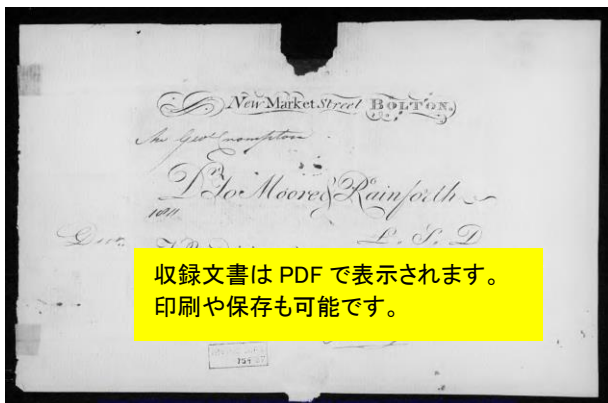 New Market Street BOLTON.
Mr Geo Crompton
Dr To Moore & Rainforth
1811
Decr
L. S. D
収録文書は PDF で表示されます。
印刷や保存も可能です。